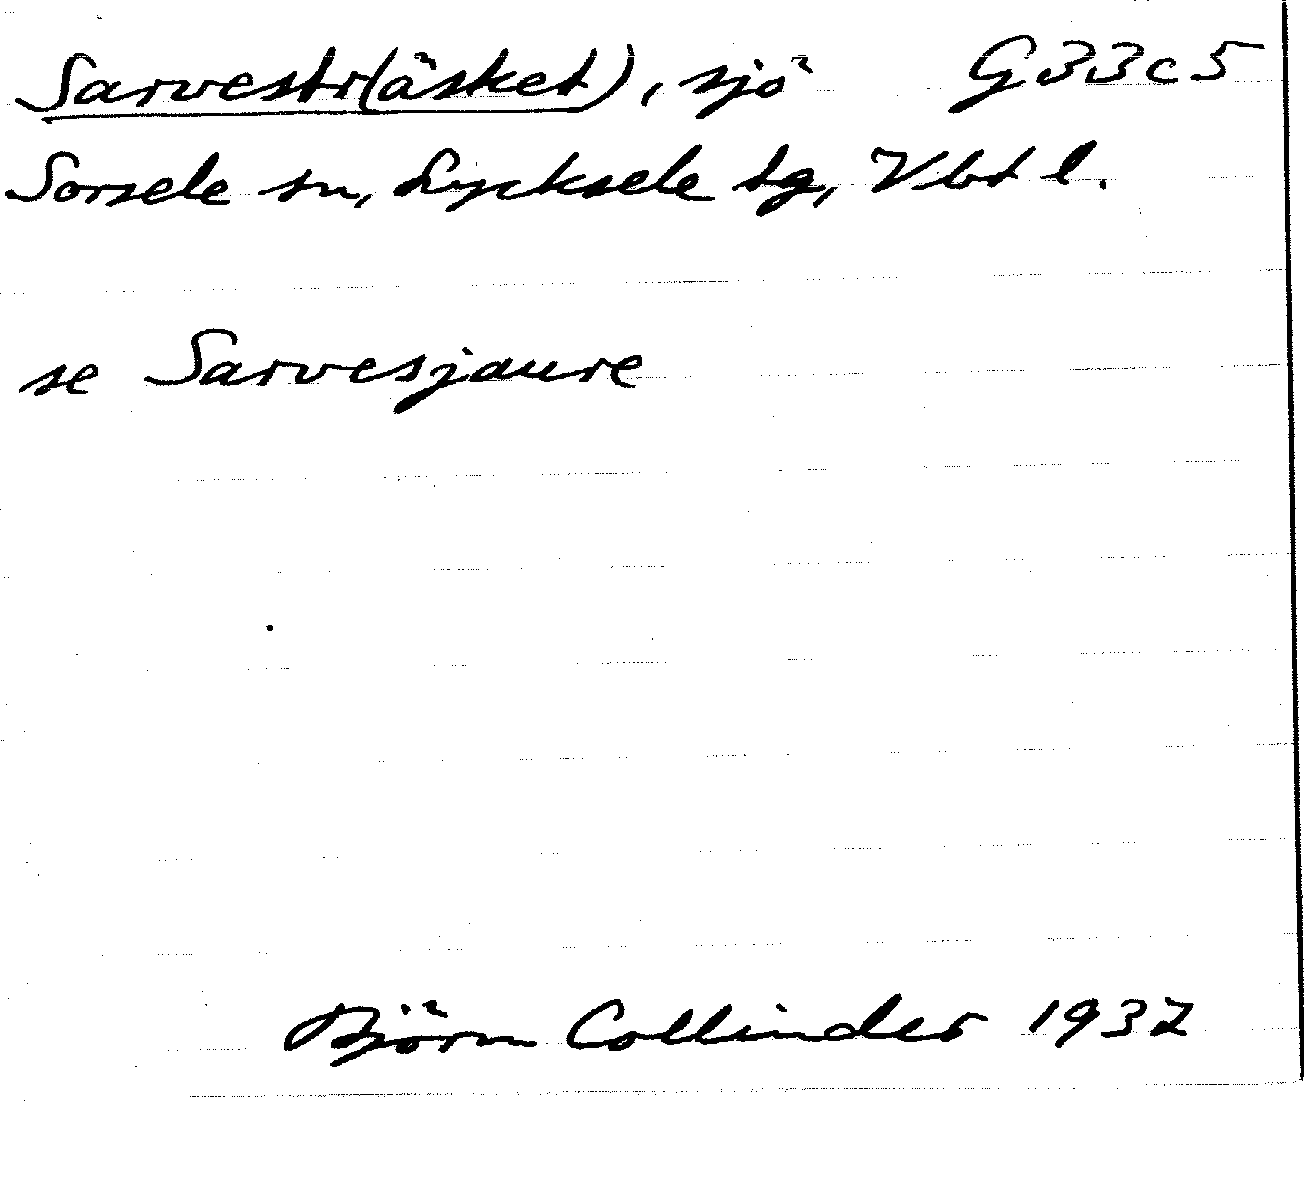 Sarvestr(äsket), sjö G33c5
Sorsele sn, Lycksele tg, Vbt l.
se Sarvesjaure
Björn Collinder 1937